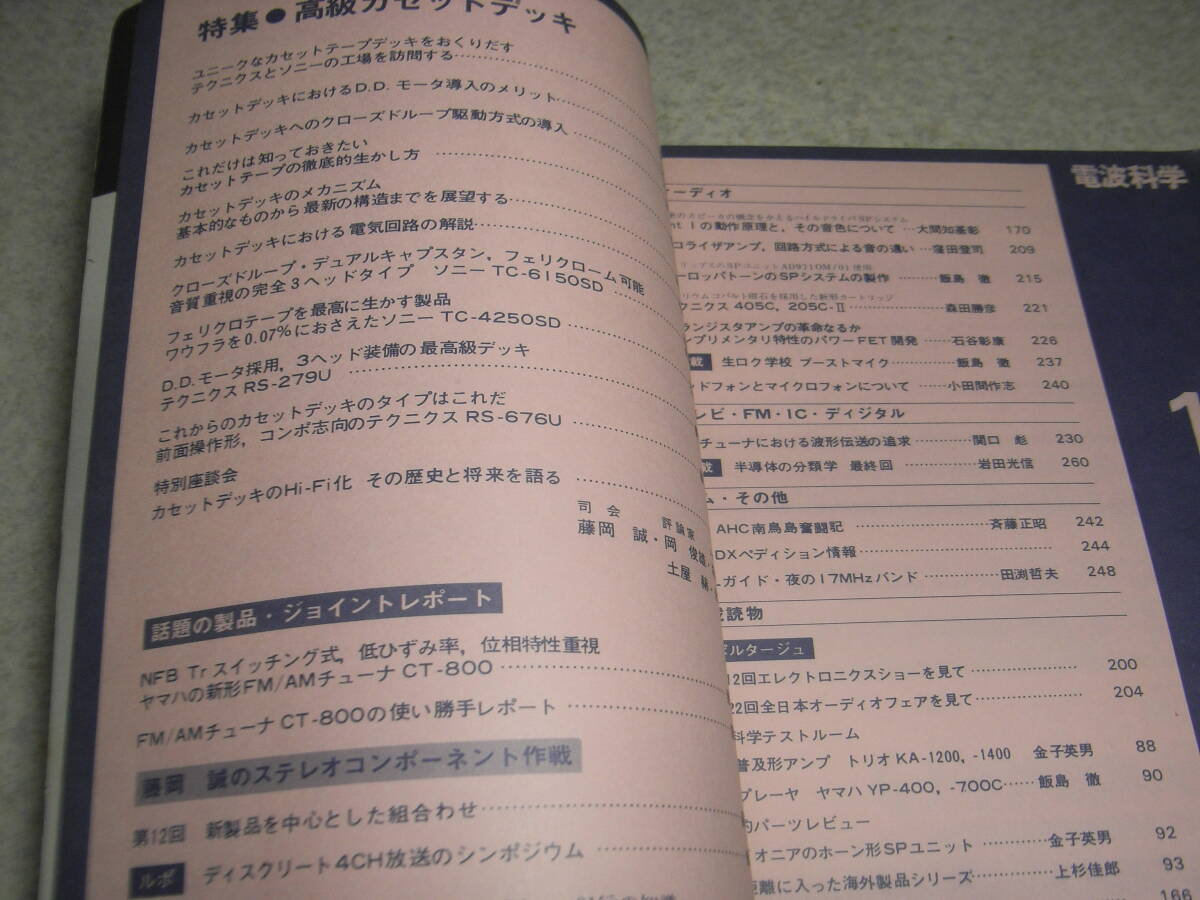 特集●高級カセットデッキ
ユニークなカセットテープデッキをおくりだす
テクニクスとソニーの工場を訪問する
カセットデッキにおけるD.D.モータ導入のメリット
カセットデッキへのクローズドループ駆動方式の導入
これだけは知っておきたい
カセットテープの徹底的生かし方
カセットデッキのメカニズム
基本的なものから最新の構造までを展望する
カセットデッキにおける電気回路の解説
クローズドループ・デュアルキャプスタン,フェリクローム可能
音質重視の完全3ヘッドタイプ ソニーTC-6150SD
フェリクロテープを最高に生かす製品
ワウフラを0.07%におさえたソニーTC-4250SD
D.D.モータ採用,3ヘッド装備の最高級デッキ
テクニクスRS-279U
これからのカセットデッキのタイプはこれだ
前面操作形,コンポ志向のテクニクスRS-676U
特別座談会
カセットデッキのHi-Fi化 その歴史と将来を語る
司会 評論家
藤岡 誠・岡 俊雄
土屋
話題の製品・ジョイントレポート
NFB Trスイッチング式,低ひずみ率,位相特性重視
ヤマハの新形FM/AMチューナCT-800
FM/AMチューナCT-800の使い勝手レポート
藤岡 誠のステレオコンポーネント作戦
第12回 新製品を中心とした組合わせ
ルポ ディスクリート4CH放送のシンポジウム
電波科学
ーディオ
のスピーカの概念をかえるハイルドライバSPシステム
nt 1の動作原理と,その音色について 大間知基彰 170
コライザアンプ,回路方式による音の違い 窪田登司 209
リップスのSPユニットAD9710M/01使用
ーロッパトーンのSPシステムの製作 飯島 徹 215
リウムコバルト磁石を採用した新形カートリッジ
クニクス 405C, 205C-II 森田勝彦 221
ランジスタアンプの革命なるか
ンプリメンタリ特性のパワーFET開発 石谷彰康 226
載 生ロク学校 ブーストマイク 飯島 徹 237
ッドフォンとマイクロフォンについて 小田間作志 240
レビ・FM・IC・ディジタル
チューナにおける波形伝送の追求 関口 彪 230
載 半導体の分類学 最終回 岩田光信 260
ム・その他
AHC南鳥島奮闘記 斉藤正昭 242
DXペディション情報 244
ガイド・夜の17MHzバンド 田渕哲夫 248
読物
ボルタージュ
12回エレクトロニクスショーを見て 200
22回全日本オーディオフェアを見て 204
科学テストルーム
普及形アンプ トリオKA-1200, -1400 金子英男 88
プレーヤ ヤマハYP-400, -700C 飯島 徹 90
パーツレビュー
オニアのホーン形SPユニット 金子英男 92
距離に入った海外製品シリーズ 上杉佳郎 93
166